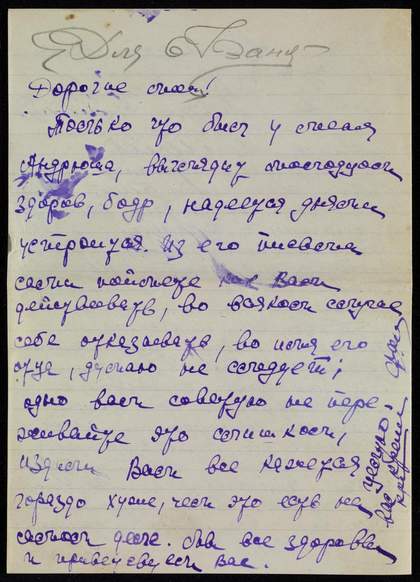 Для Вани
Дорогие мои!
Только что был у меня
Андрюша, выглядит молодцом
здоров, бодр, надеется днями
устроится. Из его письма
сами поймете как Вам
действовать, во всяком случае
себе отказывать, во имя его
отца, думаю не следует;
одно вам советую не пере
живайте это слишком,
издали Вам все кажется
гораздо хуже, чем это есть на
самом деле. Мы все здоровы
и приветствуем Вас.
Целую
вас крепко